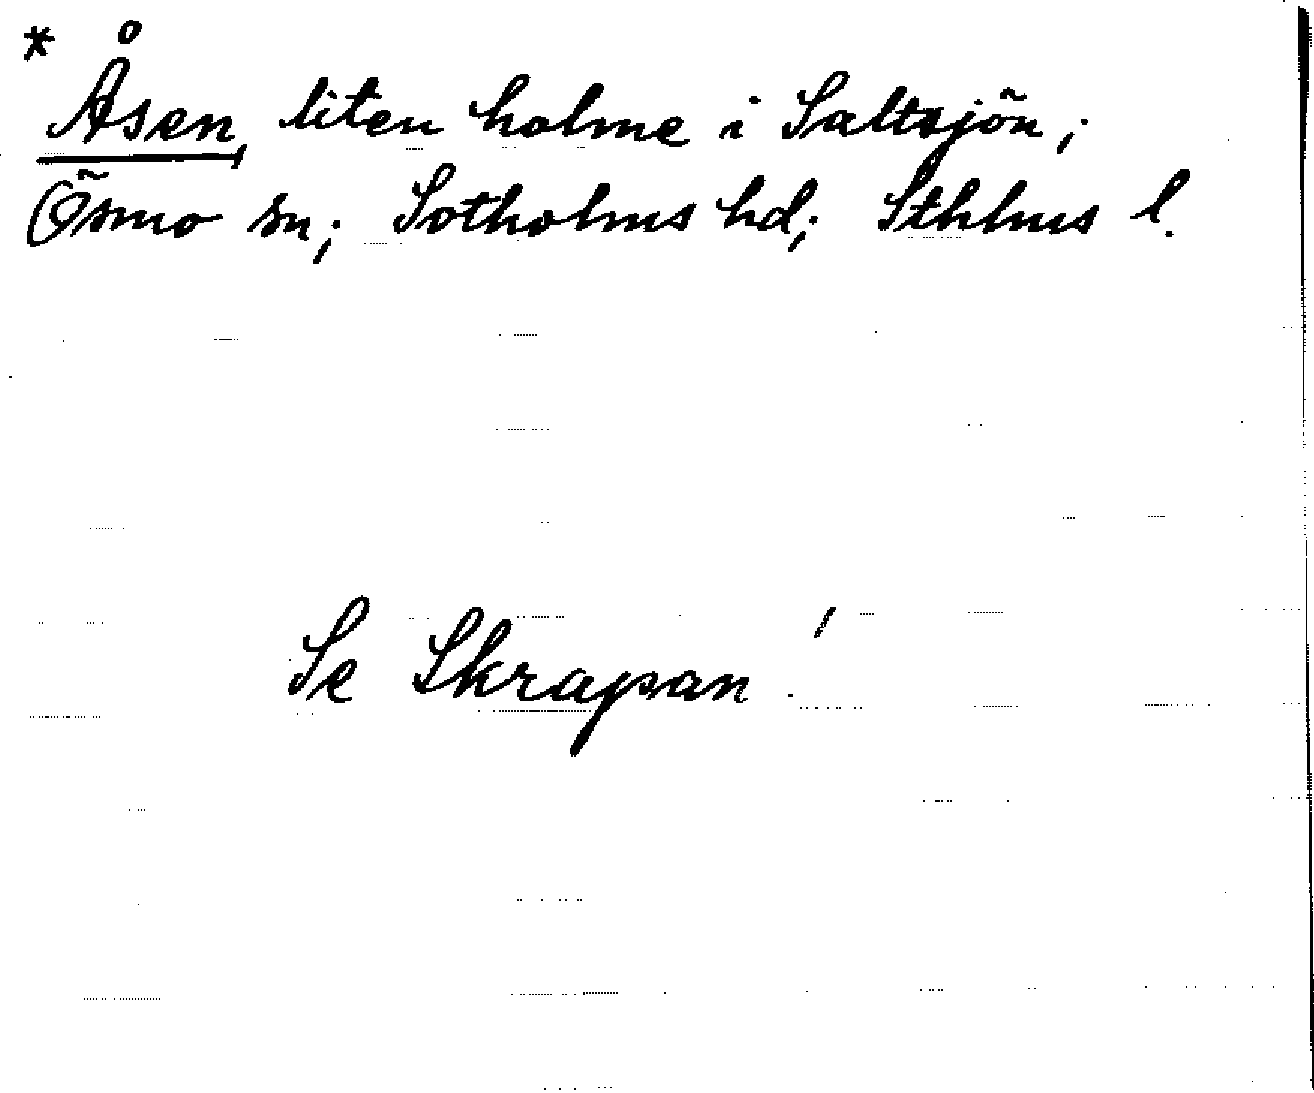 * Åsen, liten holme i Saltsjön;
Ösmo sn; Sotholms hd; Sthlms l.
Se Skrapan!